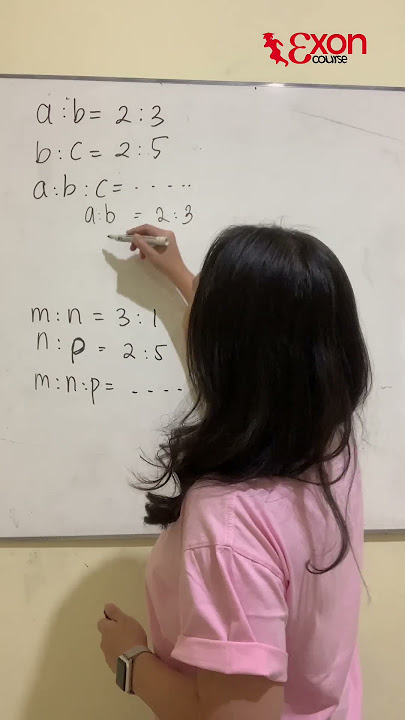 Exon
course
a:b = 2:3
b:c = 2:5
a:b:c = .....
a:b = 2:3
m:n = 3:1
n:p = 2:5
m:n:p = ....